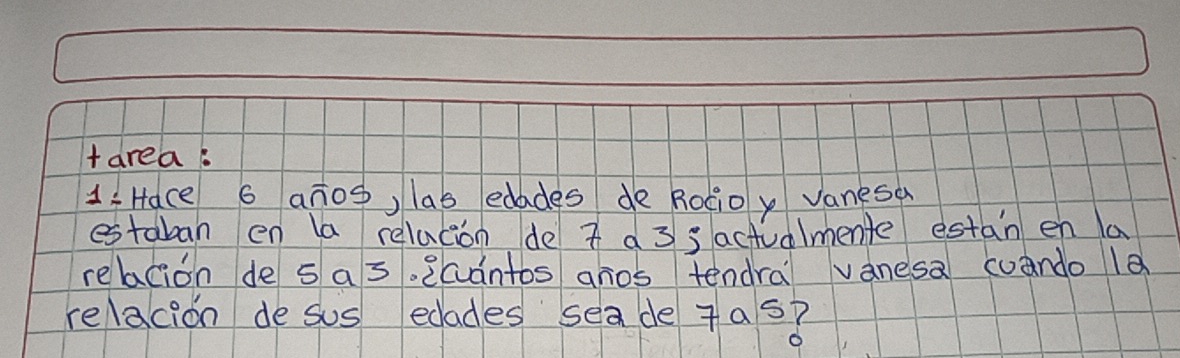 tarea:
1: Hace 6 años, las edades de Rocio y Vanesa
estaban en la relación de 7 a 3; actualmente están en la
relación de 5 a 3. ¿Cuántos años tendrá Vanesa cuando la
relación de sus edades sea de 7 a 5?